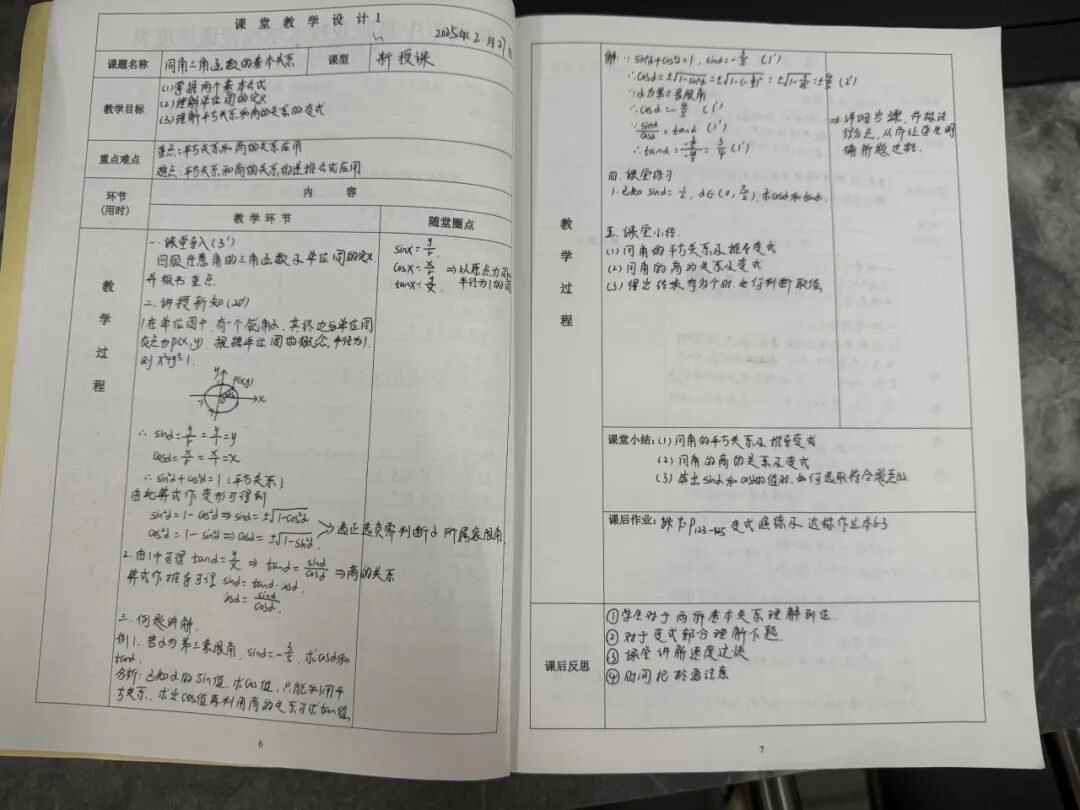 课堂教学设计1
2025年2月27日
课题名称 同角三角函数的基本关系 课型 新授课
教学目标
(1)掌握两个基本公式
(2)理解单位圆的定义
(3)理解平方关系和商的关系的变式
重点难点
重点:平方关系和商的关系应用
难点:平方关系和商的关系的逆推公式应用
环节
(用时)
内 容
教学环节 随堂圈点
教学过程
一.课堂导入(3')
回顾任意角的三角函数及单位圆的定义
并板书重点.
sinx=y/r
cosx=x/r
tanx=y/x
⇒以原点为圆
半径为1的圆
二.讲授新知(20')
1.在单位圆中,有一个锐角α,其终边与单位圆
交点为p(x,y).根据单位圆的概念,半径为1.
则x²+y²=1.
y
p(x,y)
-1
x
∴ sinα=y/r=y/1=y
cosα=x/r=x/1=x
∴ sin²α+cos²α=1(平方关系)
由此算式作变形可得到
sin²α=1-cos²α⇒sinα=±√1-cos²α
cos²α=1-sin²α⇒cosα=±√1-sin²α.
⇒选正选负需判断α所属象限角.
2.由1中可得 tanα=y/x ⇒ tanα=sinα/cosα ⇒商的关系
算式作推导可得 sinα=tanα·cosα.
cosα=sinα/cosα.
三.例题讲解.
例1.若α为第三象限角,sinα=-3/5,求cosα和
tanα.
分析:已知α的sin值,求cos值,只能利用平
方关系.求出cos值再利用商的关系可求tan值.
6
解:∵sin²α+cos²α=1,sinα=-3/5 (1')
∴cosα=±√1-sin²α=±√1-(-3/5)²=±√1-9/25=±4/5(2')
∵α为第三象限角
∴cosα=-4/5 (1')
∵sinα/cosα=tanα (1')
∴tanα=(-3/5)/(-4/5)=3/4(1')
⇒详细步骤,并标注
得分点,从而让学生明
确解题过程.
四.课堂练习
1.已知sinα=1/2,α∈(0,π/2),求cosα和tanα.
五.课堂小结.
(1)同角的平方关系及推导变式
(2)同角的商的关系及变式
(3)得出结果有两个时,如何判断取值
教学过程
课堂小结:(1)同角的平方关系及推导变式
(2)同角的商的关系及变式
(3)算出sinα和cosα的值时,如何选取符合题意的
课后作业:P123-125 变式训练及达标作业本6.3
课后反思
①学生对于两种基本关系理解到位.
②对于变式部分理解不熟.
③课堂讲解速度过快
④时间把
7